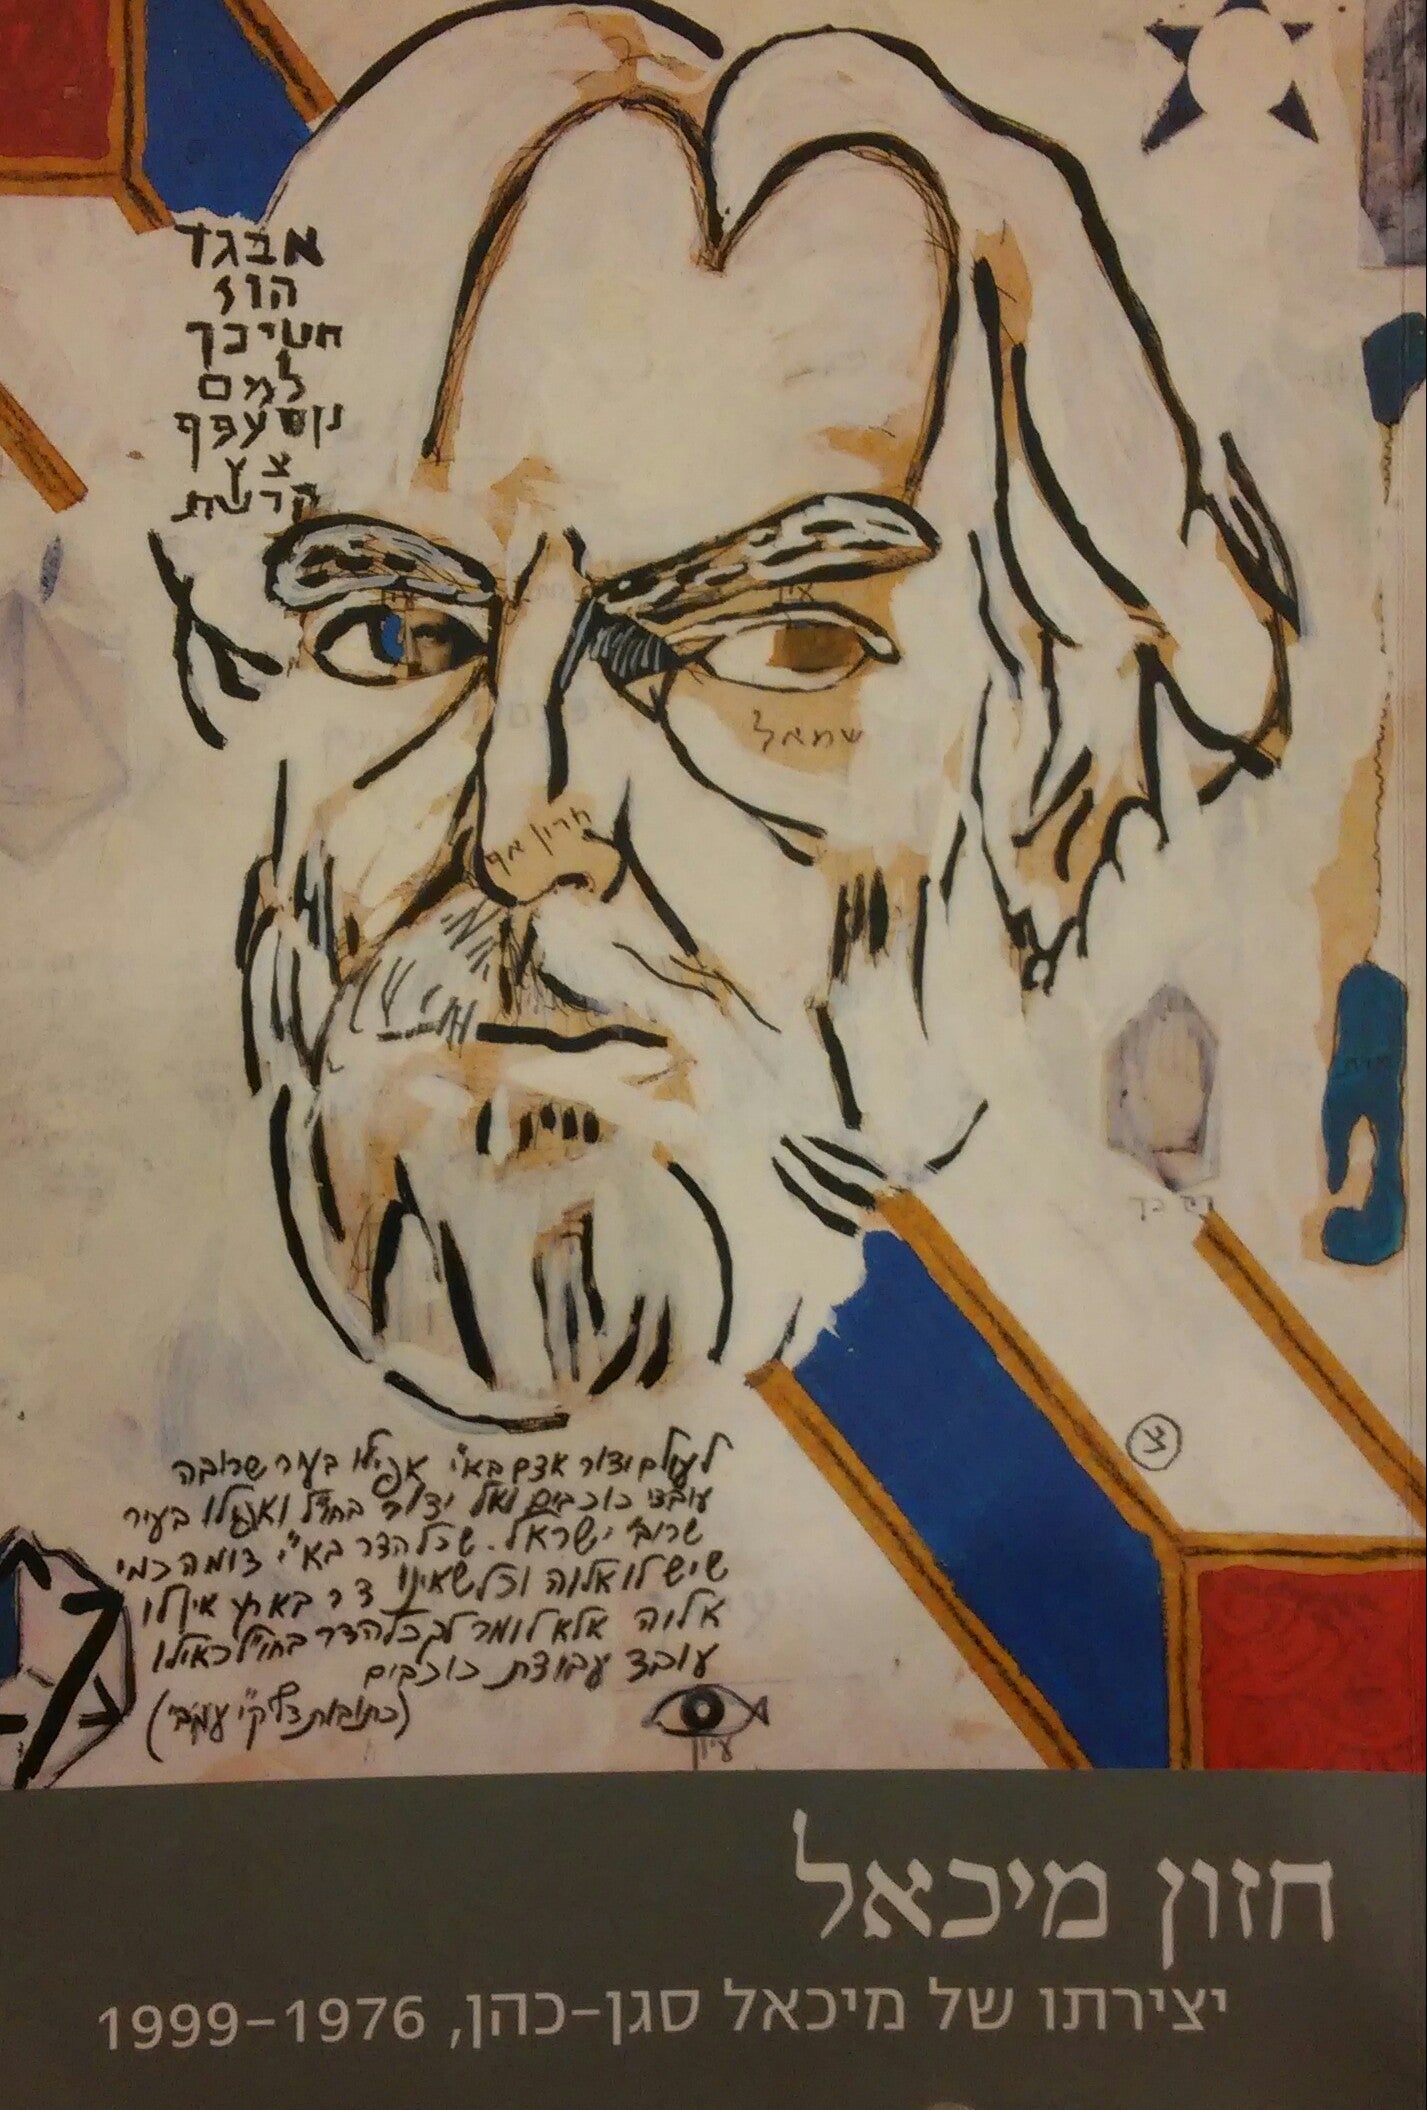 אבגד
הוז
חטיכך
למם
נןסעפף
צץ
קרשת
עין
עין
שמאל
חרון אף
לעולם ידור אדם בא״י אפילו בעיר שרובה
עובדי כוכבים ואל ידור בחו״ל ואפילו בעיר
שרוב׳ ישראל. שכל הדר בא״י דומה כמי
שיש לו אלוה וכל שאינו דר בארץ אין לו
אלוה אלא לומר לך כל הדר בחו״ל כאילו
עובד עבודת כוכבים
(כתובות דף ק״י עמ׳ב׳)
עיון
צ
חזון מיכאל
יצירתו של מיכאל סגן-כהן, 1976-1999